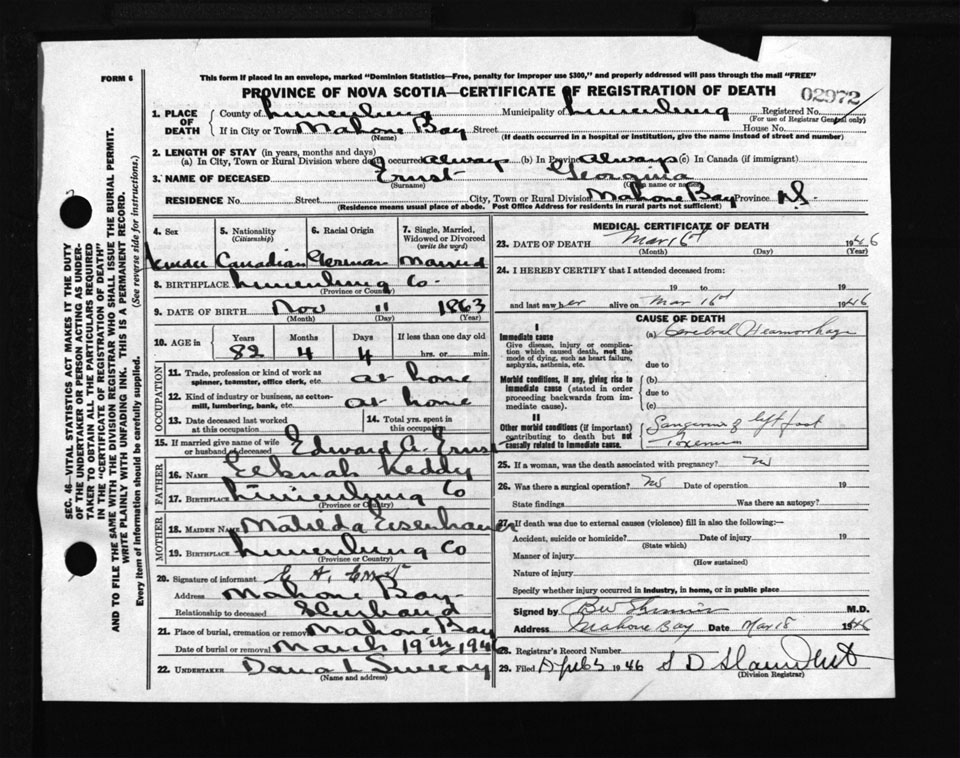 FORM 6
This form if placed in an envelope, marked "Dominion Statistics—Free, penalty for improper use $300," and properly addressed will pass through the mail "FREE"
PROVINCE OF NOVA SCOTIA—CERTIFICATE OF REGISTRATION OF DEATH
02972
1. PLACE OF DEATH { County of Lunenburg Municipality of Lunenburg Registered No.
(For use of Registrar General only)
If in City or Town Mahone Bay Street House No.
(Name) (If death occurred in a hospital or institution, give the name instead of street and number)
2. LENGTH OF STAY (in years, months and days)
(a) In City, Town or Rural Division where death occurred Always (b) In Province Always (c) In Canada (if immigrant)
3. NAME OF DECEASED Ernst Georgina
(Surname) (Given name or names)
RESIDENCE No. Street City, Town or Rural Division Mahone Bay Province N.S.
(Residence means usual place of abode. Post Office Address for residents in rural parts not sufficient)
4. Sex 5. Nationality (Citizenship) 6. Racial Origin 7. Single, Married, Widowed or Divorced (write the word)
Canadian German Married
8. BIRTHPLACE Lunenburg Co.
(Province or Country)
9. DATE OF BIRTH Nov 11 1863
(Month) (Day) (Year)
10. AGE in Years Months Days If less than one day old
82 4 4 hrs. or min.
OCCUPATION
11. Trade, profession or kind of work as spinner, teamster, office clerk, etc. at home
12. Kind of industry or business, as cotton-mill, lumbering, bank, etc. at home
13. Date deceased last worked at this occupation 14. Total yrs. spent in this occupation
15. If married give name of wife or husband of deceased Edward A. Ernst
FATHER
16. NAME Elknah Keddy
17. BIRTHPLACE Lunenburg Co
(Province or Country)
MOTHER
18. MAIDEN NAME Matilda Eisenhauer
19. BIRTHPLACE Lunenburg Co
(Province or Country)
20. Signature of informant E. A. Ernst
Address Mahone Bay
Relationship to deceased Husband
21. Place of burial, cremation or removal Mahone Bay
Date of burial or removal March 19th 1946
22. UNDERTAKER Dana L Sweeny
(Name and address)
MEDICAL CERTIFICATE OF DEATH
23. DATE OF DEATH Mar 16th 1946
(Month) (Day) (Year)
24. I HEREBY CERTIFY that I attended deceased from:
19 to 19
and last saw her alive on Mar 16th 1946
CAUSE OF DEATH
I
Immediate cause (a) Cerebral Heamorrhage
Give disease, injury or complication which caused death, not the mode of dying, such as heart failure, asphyxia, asthenia, etc.
due to
Morbid conditions, if any, giving rise to immediate cause (stated in order proceeding backwards from immediate cause).
(b)
due to
(c)
II
Other morbid conditions (if important) contributing to death but not causally related to immediate cause.
Gangrene of left foot
Toxemia
25. If a woman, was the death associated with pregnancy? No
26. Was there a surgical operation? No Date of operation 19
State findings Was there an autopsy?
27. If death was due to external causes (violence) fill in also the following:—
Accident, suicide or homicide? Date of injury 19
(State which)
Manner of injury
(How sustained)
Nature of injury
Specify whether injury occurred in industry, in home, or in public place
Signed by M.D.
Address Mahone Bay Date Mar 18 1946
28. Registrar's Record Number
29. Filed 1946 S D
(Division Registrar)
SEC. 46—VITAL STATISTICS ACT MAKES IT THE DUTY
OF THE UNDERTAKER OR PERSON ACTING AS UNDER-
TAKER TO OBTAIN ALL THE PARTICULARS REQUIRED
IN THE "CERTIFICATE OF REGISTRATION OF DEATH"
AND TO FILE THE SAME WITH THE DIVISION REGISTRAR WHO SHALL ISSUE THE BURIAL PERMIT.
WRITE PLAINLY WITH UNFADING INK. THIS IS A PERMANENT RECORD.
Every item of information should be carefully supplied. (See reverse side for instructions.)